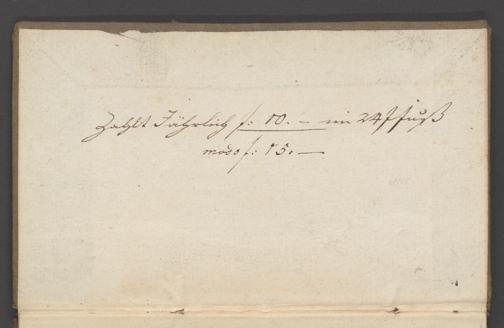 Zahlt Jährlich f: 10. – im 24 f fuß
modo f: 15. –